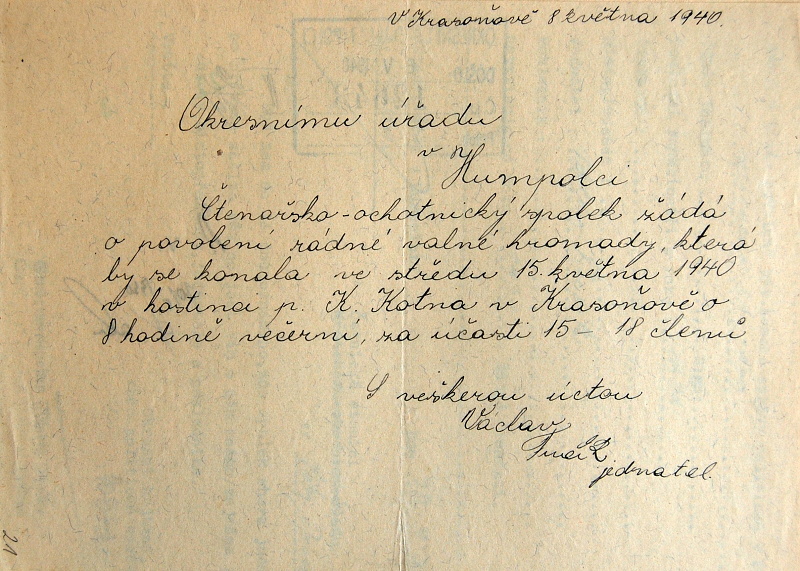 V Krasoňově 8 května 1940.
Okresnímu úřadu
v
Humpolci
Čtenařsko-ochotnický spolek žádá
o povolení rádné valné hromady, která
by se konala ve středu 15. května 1940
v hostinci p. K. Kotna v Krasoňově o
8 hodině večerní, za účasti 15 - 18 členů
S veškerou úctou
Václav
jednatel.
21